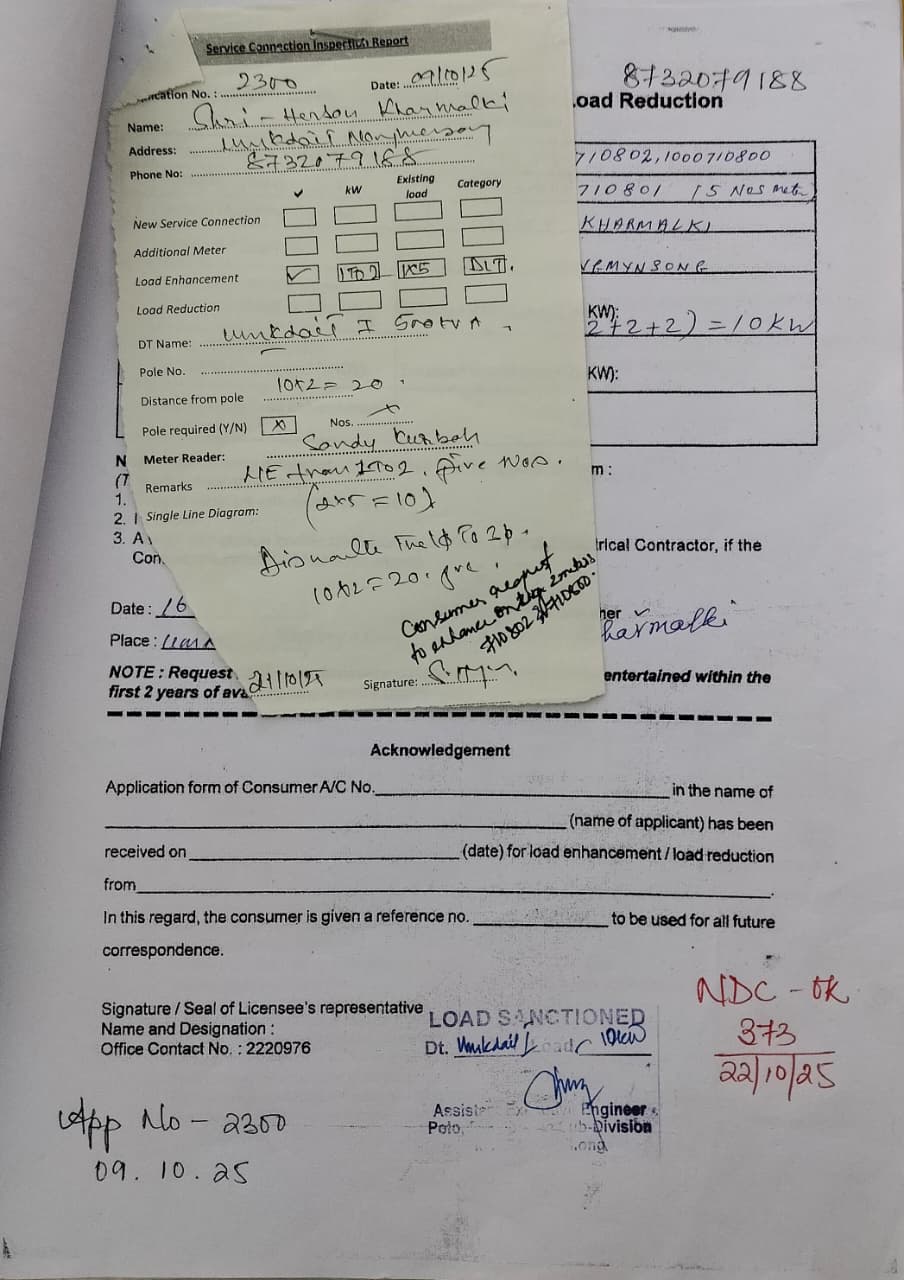 Service Connection Inspection Report
ication No. : 2300 Date: 09/10/25
Name: Shri - Henton Kharmalki
Address: Umkdait Nongmensong
Phone No: 8732079188
✓ kW Existing load Category
New Service Connection
Additional Meter
Load Enhancement ✓ 1TO2 1x5 DLT.
Load Reduction
DT Name: Umkdait I 500KVA
Pole No.
Distance from pole 10x2= 20
Pole required (Y/N) X Nos. x
Meter Reader: Sandy Kurbah
Remarks LE from 1TO2, five Nos.
Single Line Diagram: (2x5=10)
Dismantle The 1φ To 2φ.
10x2=20.
Consumer request
to enhance 2 meters
710802 710800.
21/10/25
Signature:
8732079188
oad Reduction
710802,1000710800
710801 15 Nos Meter
KHARMALKI
GMYNSONG
KW):
2+2+2) = 10 KW
KW):
N
(T m :
1.
2. I
3. A
Con trical Contractor, if the
Date : 16 ner ✓
Place : harmalki
NOTE : Request entertained within the
first 2 years of ava
Acknowledgement
Application form of Consumer A/C No. in the name of
(name of applicant) has been
received on (date) for load enhancement / load reduction
from .
In this regard, the consumer is given a reference no. to be used for all future
correspondence.
Signature / Seal of Licensee's representative
Name and Designation :
Office Contact No. : 2220976
LOAD SANCTIONED
Dt. Umkdait I Load 10kW
Assist Engineer
Polo, ub-Division
ong
NDC - OK
373
22/10/25
App No - 2300
09.10.25